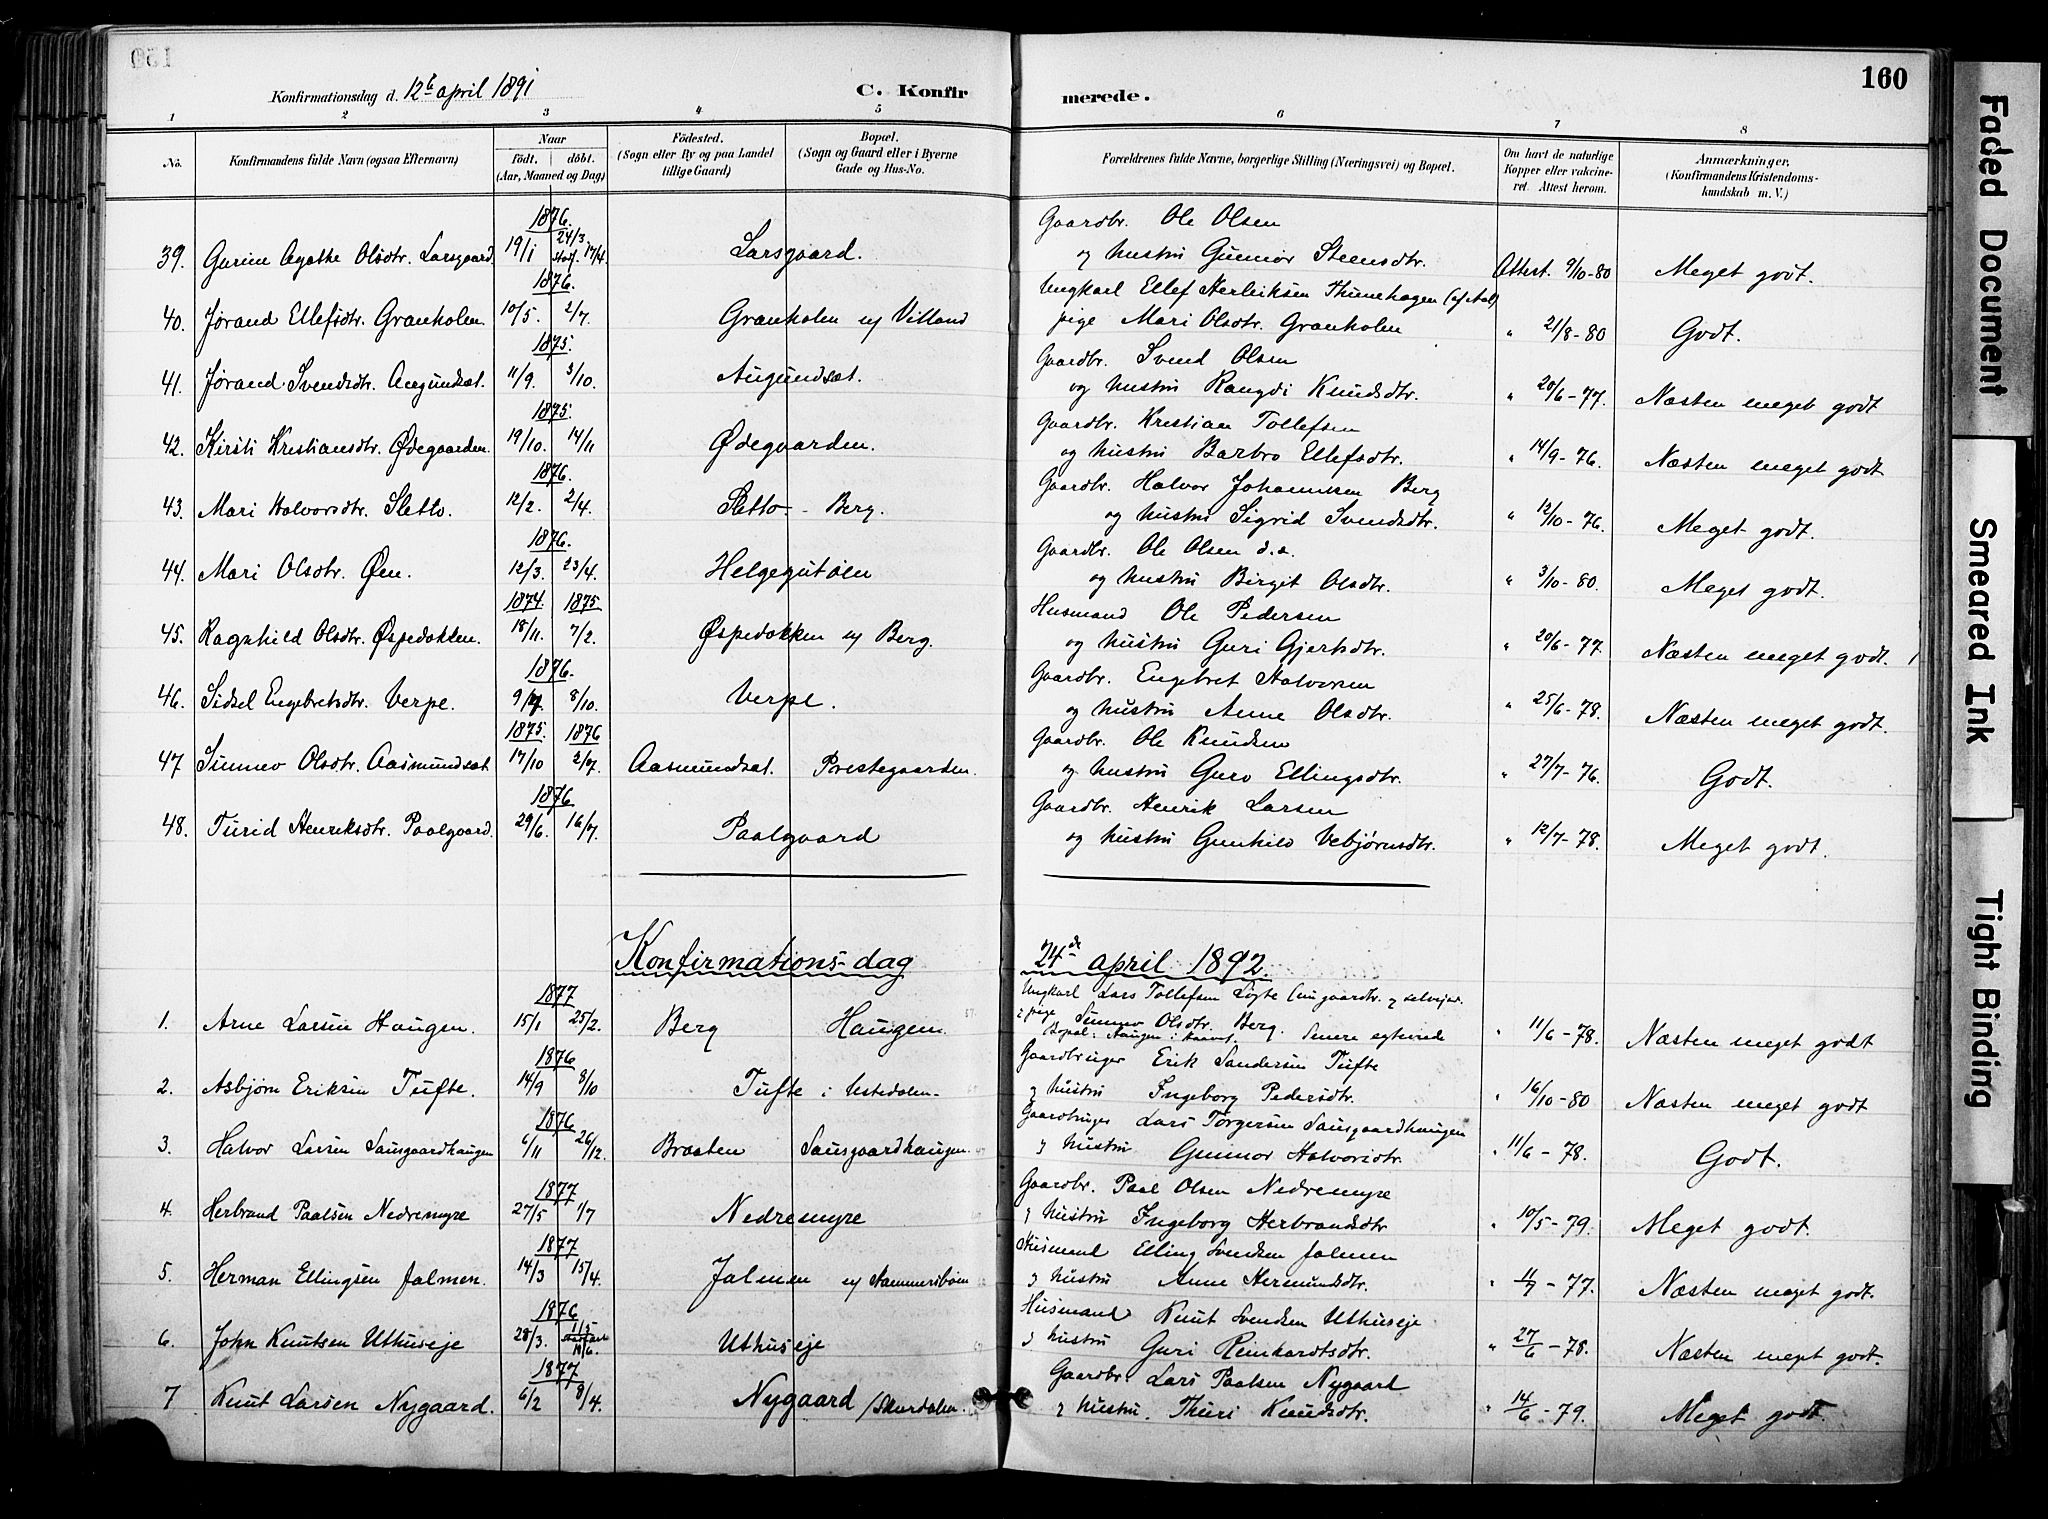 160
Konfirmationsdag d. 12te april 1891 C. Konfirmerede.
1 2 3 4 5 6 7 8
No. Konfirmandens fulde Navn (ogsaa Efternavn) Naar født. døbt. (Aar, Maaned og Dag) Fødested. (Sogn eller By og paa Landet tillige Gaard) Bopæl. (Sogn og Gaard eller i Byerne Gade og Hus-No. Forældrenes fulde Navne, borgerlige Stilling (Næringsvei) og Bopæl. Om havt de naturlige Kopper eller vakcineret. Attest herom. Anmærkninger. (Konfirmandens Kristendomskundskab m. V.)
1876 Gaardbr. Ole Olsen
39. Gurine Agathe Olsdtr. Larsgaard. 19/1 24/3 stadf. 17/4 Larsgaard. og hustru Gunnor Steensdtr. Attest. 9/10-80 Meget godt.
1876. Ungkarl Ellef Henriksen Thunehagen (af Aal)
40. Jørand Ellefsdtr. Granholen. 10/5. 2/7. Granholen u/ Villand pige Mari Olsdtr. Granholen " 21/8-80 Godt.
1875. Gaardbr. Svend Olsen
41. Jørand Svendsdtr. Augundsæt. 11/9. 3/10. Augundsæt. og hustru Rangdi Knudsdtr. " 20/6-77. Næsten meget godt
1875. Gaardbr. Kristian Tollefsen
42. Kirsti Kristiansdtr. Ødegaarden. 19/10. 14/11 Ødegaarden. og hustru Barbro Ellefsdtr. " 14/9-76. Næsten meget godt
1876. Gaardbr. Halvor Johannesen Berg
43. Mari Halvorsdtr. Sletto. 12/2. 2/4. Sletto - Berg. og hustru Sigrid Svendsdtr. " 12/10-76. Meget godt.
1876. Gaardbr. Ole Olsen d.æ.
44. Mari Olsdtr. Øen. 12/3. 23/4. Helgegutøen og hustru Birgit Olsdtr. " 3/10-80. Meget godt.
1874. 1875 Husmand Ole Pedersen
45. Ragnhild Olsdtr. Øspedokken. 18/11. 7/2. Øspedokken u/ Berg. og hustru Guri Gjertsdtr. " 20/6-77. Næsten meget godt.
1876. Gaardbr. Engebret Halvorsen
46. Sidsel Engebretsdtr. Verpe. 9/7. 8/10. Verpe. og hustru Anne Olsdtr. " 25/6-78. Næsten meget godt.
1875. 1876 Gaardbr. Ole Knudsen
47 Sunnev Olsdtr. Aasmundsæt 17/10 2/7. Aasmundsæt. Prestegaarden. og hustru Guro Ellingsdtr. " 27/7-76. Godt.
1876 Gaardbr. Henrik Larsen
48. Turid Henriksdtr. Paalgaard. 29/6. 16/7. Paalgaard og hustru Gunhild Vebjørnsdtr. " 12/7-78. Meget godt.
Konfirmations-dag 24de april 1892.
1877 Ungkarl Lars Tollefsen Løgte
1. Arne Larsen Haugen. 15/1 25/2. Berg Haugen. pige Sunnev Olsdtr. Berg. " 11/6-78. Næsten meget godt
Bopæl: Haugen i Senere egteviede
1876 Gaardbruger Erik Sandersen Tufte
2. Asbjørn Eriksen Tufte. 14/9 8/10 Tufte i Ustedalen. & hustru Ingeborg Pedersdtr. " 16/10-80 Næsten meget godt
1876 Gaardbruger Lars Torgersen Sausgaardhaugen
3. Halvor Larsen Sausgaardhaugen 6/11 26/12. Braaten Sausgaardhaugen. & hustru Gunnor Halvorsdtr. " 11/6-78. Godt.
1877 Gaardbr. Paal Olsen Nedremyre
4. Herbrand Paalsen Nedremyre 27/5 1/7 Nedremyre & hustru Ingeborg Herbrandsdtr " 10/5-79. Meget godt.
1877 Husmand Elling Svendsen Jalmen
5. Herman Ellingsen Jalmen. 14/3 15/4. Jalmen u/ Hammersbøen & hustru Anne Hermundsdtr. " 11/7-77. Næsten meget godt.
1876 Husmand Knut Svendsen Uthuseje
6. John Knutsen Uthuseje 28/3. 11/5 stadfæst 11/6. Uthuseje & hustru Guri Reinhardtsdtr. " 27/6-78. Næsten meget godt.
1877 Gaardbr. Lars Paalsen Nygaard
7 Knut Larsen Nygaard. 6/2 8/4. Nygaard / Skurdalen. & hustru. Thuri Knudsdtr. " 14/6-79. Meget godt.
Faded Document
Smeared Ink
Tight Binding